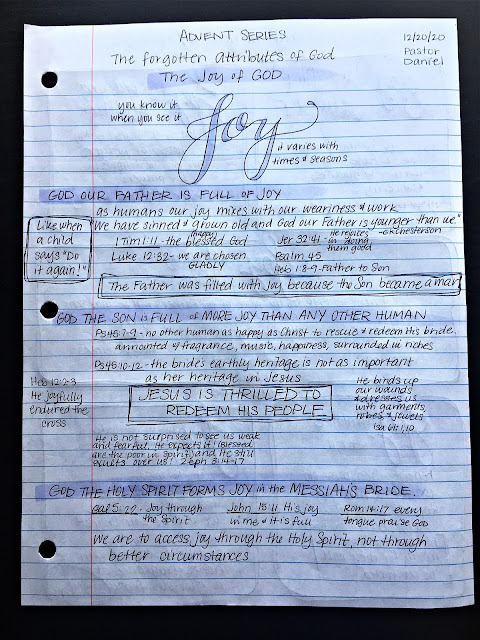 ADVENT SERIES
12/20/20
Pastor
Daniel
The forgotten attributes of God
The Joy of GOD
you know it
when you see it
Joy
it varies with
times & seasons
GOD OUR FATHER IS FULL OF JOY
as humans our joy mixes with our weariness & work
"We have sinned & grown old and God our Father is younger than we"
-GKChesterson
Like when
a child
says "Do
it again!"
1 Tim 1:11 - the blessed God
(happy)
Jer 32:41 - He rejoices
in doing
them good
Luke 12:32 - we are chosen
GLADLY
Psalm 45
Heb 1:8-9 - Father to Son
The Father was filled with Joy because the Son became a man
GOD THE SON IS FULL OF MORE JOY THAN ANY OTHER HUMAN
Ps 45:7-9 - no other human as happy as Christ to rescue & redeem his bride.
annointed w/ fragrance, music, happiness, surrounded in riches
Ps 45:10-12 - the bride's earthly heritage is not as important
as her heritage in Jesus
Heb 12:2-3
He joyfully
endured the
cross
JESUS IS THRILLED TO
REDEEM HIS PEOPLE
He binds up
our wounds
& dresses us
with garments,
robes, & jewels
Isa 61:1,10
He is not surprised to see us weak
and fearful. He expects it! (Blessed
are the poor in Spirit) and He still
exults over us! Zeph 3:14-17
GOD THE HOLY SPIRIT FORMS JOY in the MESSIAH'S BRIDE.
Gal 5:22 - Joy through
the Spirit
John 15:11 His joy
in me & it is full
Rom 14:17 every
tongue praise God
We are to access joy through the Holy Spirit, not through
better circumstances